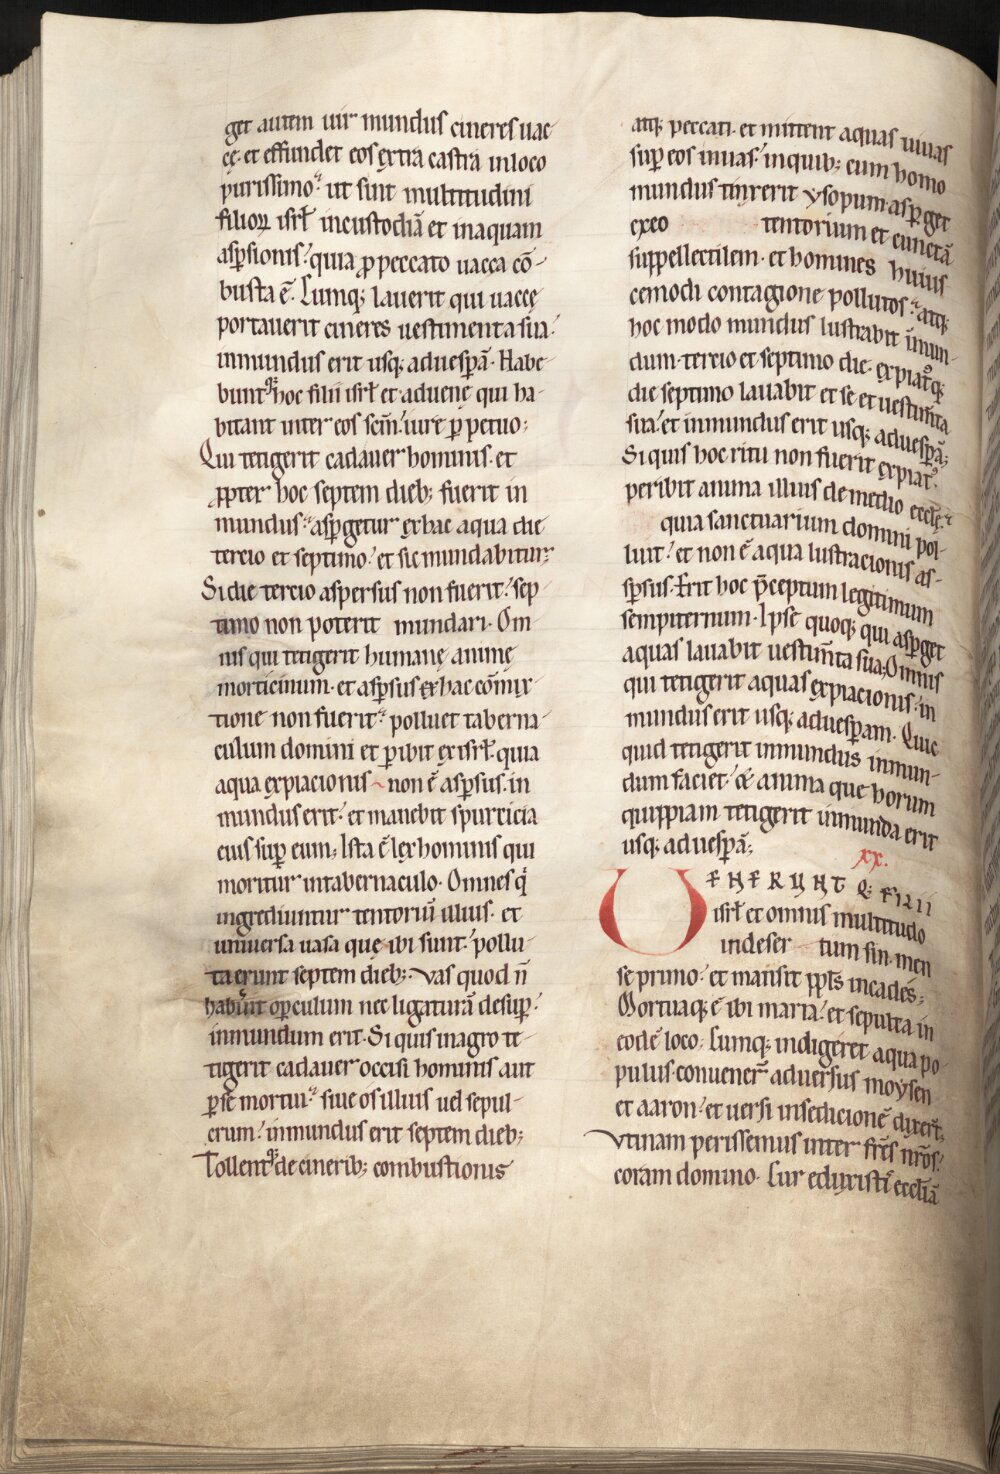 get autem uir mundus cineres uac
cę· et effundet eos extra castra in loco
purissimo· ut sint multitudini
filioꝝ isrl̄ in custodiā et in aquam
asꝑsionis· quia ꝓ peccato uacca cō-
busta ē. Cumq; lauerit qui uaccę
portauerit cineres uestimenta sua·
inmundus erit usq; ad uesꝑā· Habe
bunt hoc filii isrl̄ et aduenę qui ha-
bitant inter eos scm̄· iure ꝑpetuo;
Qui tetigerit cadauer hominis· et
ꝓpter hoc septem dieb; fuerit in
mundus· asꝑgetur ex hac aqua die
tercio et septimo· et sic mundabitur;
Si die tercio aspersus non fuerit· sep-
timo non poterit mundari· Om
nis qui tetigerit humanę animę
morticinum· et asꝑsus ex hac cōmix-
tione non fuerit· polluet taberna-
culum domini et ꝑibit ex isrl̄· quia
aqua expiacionis non ē asꝑsus· in
mundus erit· et manebit spurricia
eius suꝑ eum; Ista ē lex hominis qui
moritur in tabernaculo· Omnes q̇
ingrediuntur tentoriū illius· et
uniuersa uasa quę ibi sunt· pollu-
ta erunt septem dieb; Vas quod n̄
habūit oꝑculum nec ligaturā desuꝑ·
inmundum erit· Si quis in agro te-
tigerit cadauer occisi hominis aut
ꝑ se mortui· siue os illius uel sepul-
crum· inmundus erit septem dieb;
Tollent de cinerib; combustionis
atq; peccati· et mittent aquas uiuas
suꝑ eos in uas· in quib; cum homo
mundus tinxerit ysopum· asꝑget
ex eo tentorium et cunctā
suppellectilem· et homines huius
cemodi contagione pollutos· atq;
hoc modo mundus lustrabit īmun-
dum· tercio et septimo die· expiat᷒q;
die septimo lauabit et se et uestim̄ta
sua· et inmundus erit usq; ad uesꝑā;
Si quis hoc ritu non fuerit expiat᷒·
peribit anima illius de medio eccłę·
quia sanctuarium domini pol-
luit· et non ē aqua lustracionis as-
ꝑsus· Erit hoc p̄ceptum legitimum
sempiternum· Ipse quoq; qui asꝑget
aquas lauabit uestim̄ta sua; Omnis
qui tetigerit aquas expiacionis· in
mundus erit usq; ad uesꝑam· Quic
quid tetigerit inmundus inmun-
dum faciet· & anima que horum
quippiam tetigerit inmunda erit
usq; ad uesꝑā;
xx.
VENERUNT Q; FILII
isrl̄ et omnis multitudo
in deser tum sin· men
se primo· et mansit ppl̄s in cades;
Mortuaq; ē ibi maria· et sepulta in
eodē loco; Cumq; indigeret aqua po-
pulus· conuener̄ aduersus moysen
et aaron· et uersi in sedicionē dixer̄t;
Vtinam perissemus inter fr̄es nr̄os·
coram domino· Cur eduxisti eccłiā